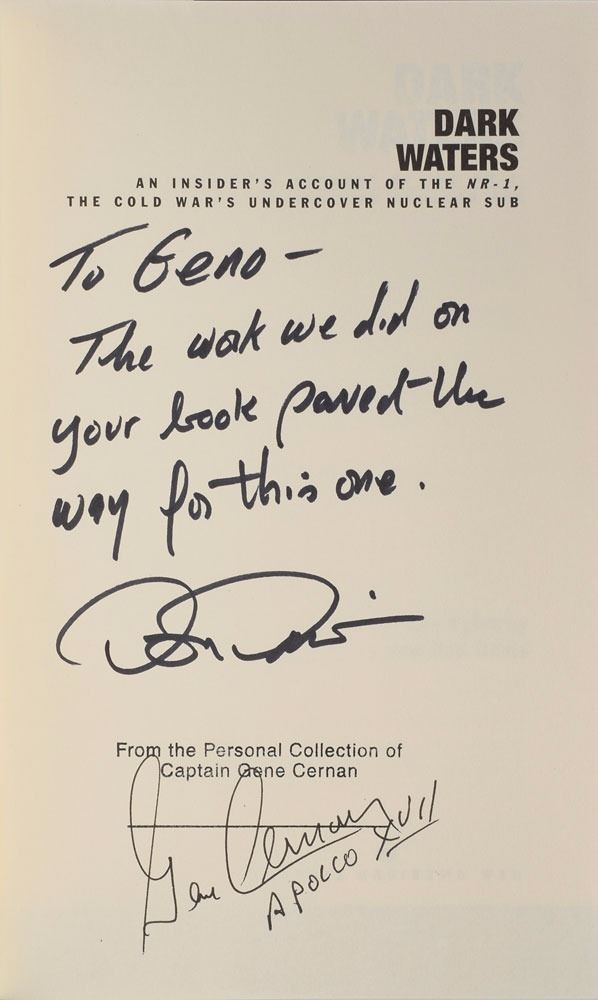 DARK
WATERS
AN INSIDER'S ACCOUNT OF THE NR-1,
THE COLD WAR'S UNDERCOVER NUCLEAR SUB
To Geno –
The work we did on
your book paved the
way for this one.
Don Davis
From the Personal Collection of
Captain Gene Cernan
Gene Cernan
APOLLO XVII